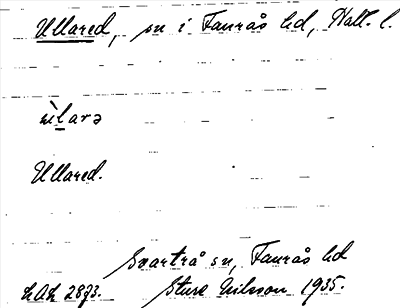 Ullared, sn i Faurås hd, Hall. l.
ùlarə
Ullared.
Svartrå sn, Faurås hd
LAL 2873. Sture Nilsson 1935.